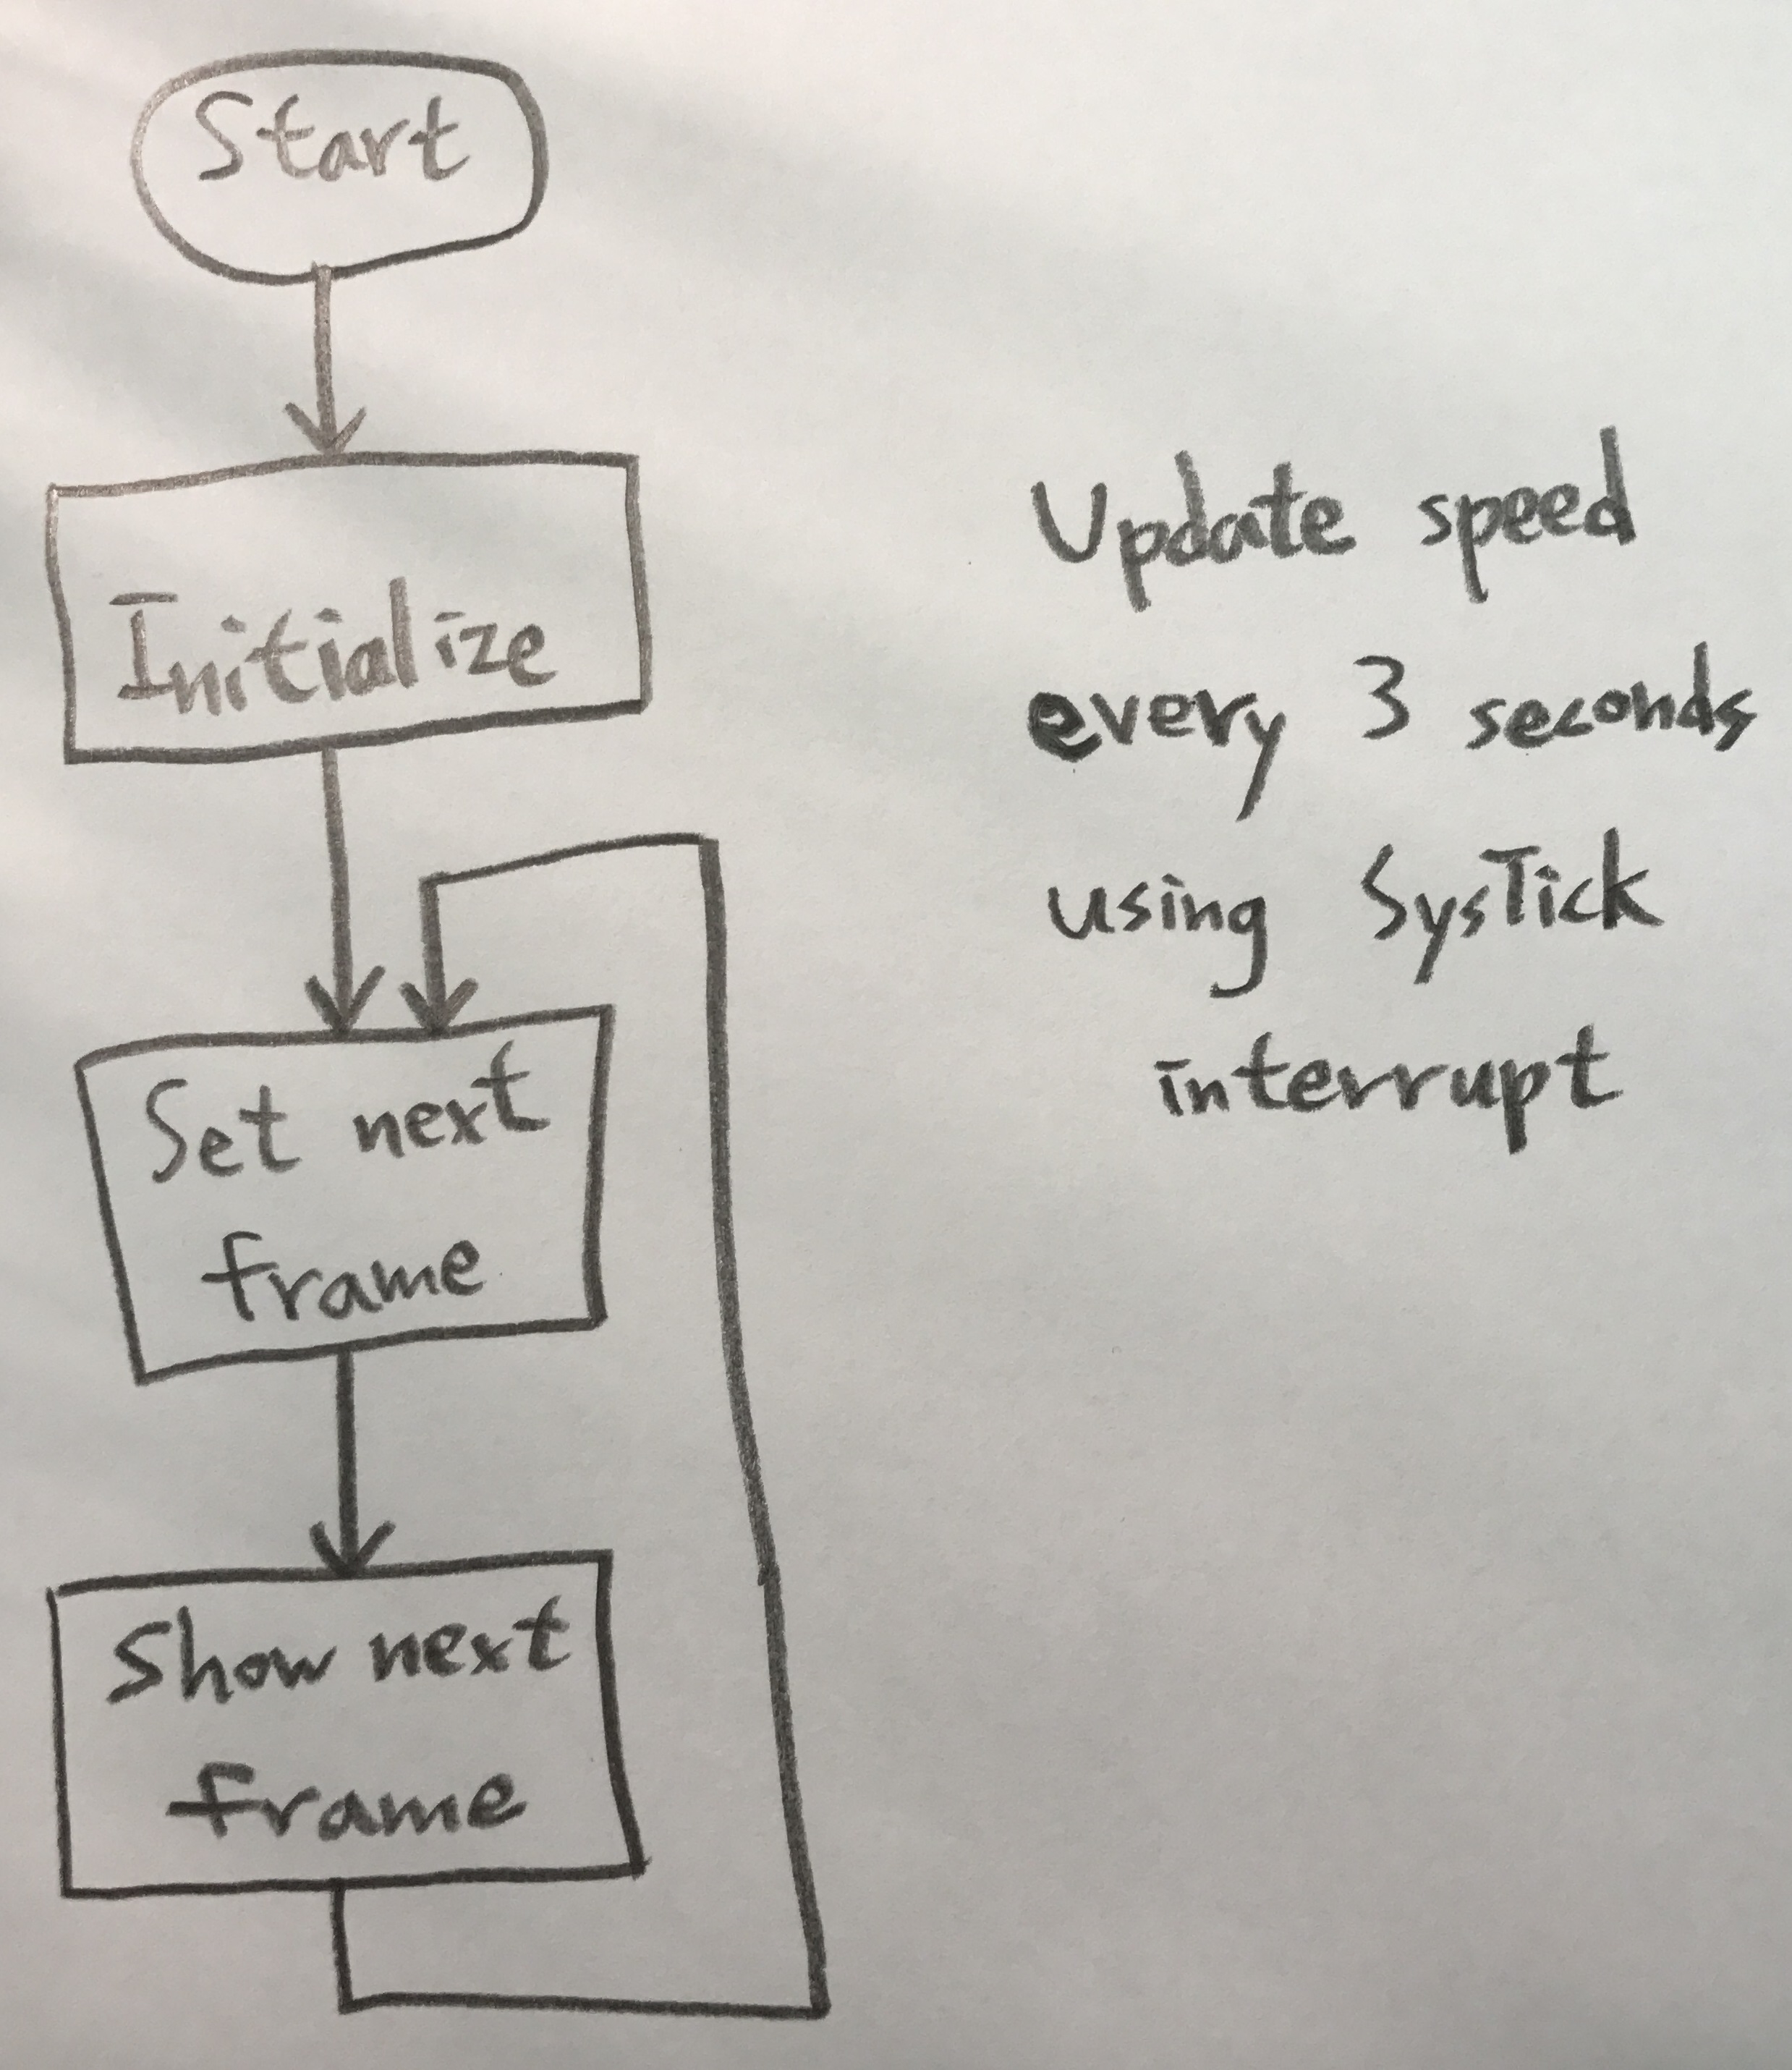 Start
Initialize
Set next
frame
Show next
frame
Update speed
every 3 seconds
using SysTick
interrupt